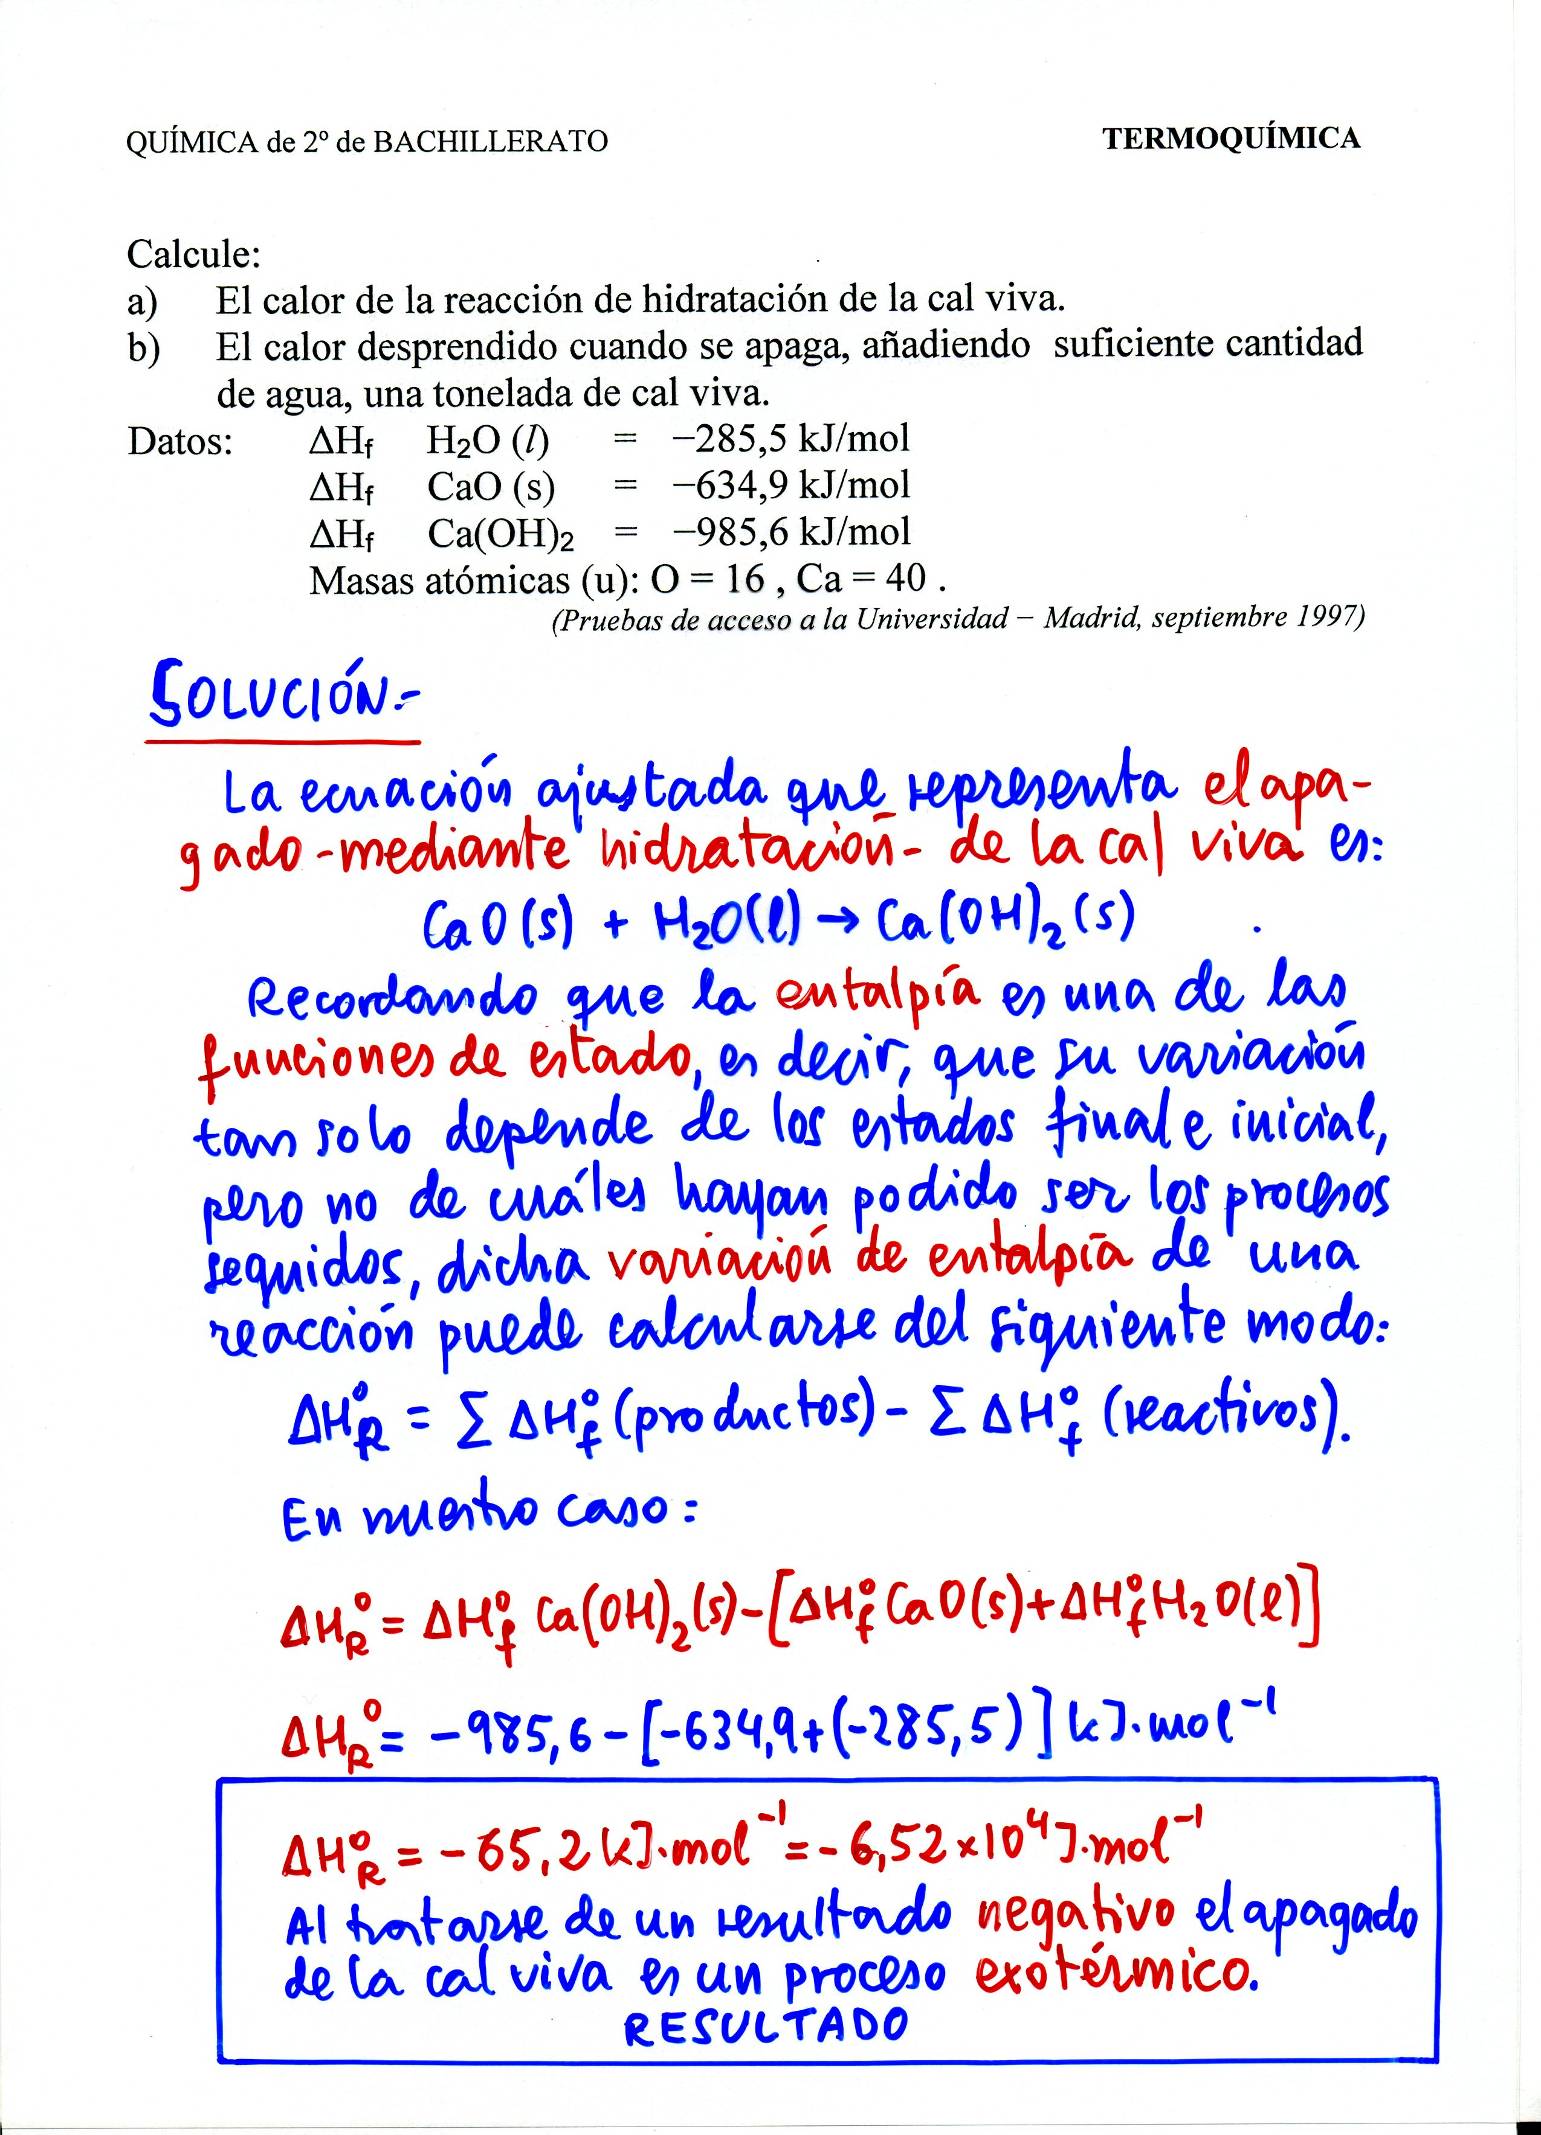 QUÍMICA de 2º de BACHILLERATO
TERMOQUÍMICA
Calcule:
a) El calor de la reacción de hidratación de la cal viva.
b) El calor desprendido cuando se apaga, añadiendo suficiente cantidad
de agua, una tonelada de cal viva.
Datos: ΔHf H₂O (l) = −285,5 kJ/mol
ΔHf CaO (s) = −634,9 kJ/mol
ΔHf Ca(OH)₂ = −985,6 kJ/mol
Masas atómicas (u): O = 16 , Ca = 40 .
(Pruebas de acceso a la Universidad − Madrid, septiembre 1997)
SOLUCIÓN.-
La ecuación ajustada que representa el apa-
gado -mediante hidratación- de la cal viva es:
CaO(s) + H₂O(l) → Ca(OH)₂(s)
Recordando que la entalpía es una de las
funciones de estado, es decir, que su variación
tan solo depende de los estados final e inicial,
pero no de cuáles hayan podido ser los procesos
seguidos, dicha variación de entalpía de una
reacción puede calcularse del siguiente modo:
ΔH°R = Σ ΔH°f (productos) - Σ ΔH°f (reactivos).
En nuestro caso:
ΔH°R = ΔH°f Ca(OH)₂(s) - [ΔH°f CaO(s) + ΔH°f H₂O(l)]
ΔH°R = -985,6 - [-634,9 + (-285,5)] kJ·mol⁻¹
ΔH°R = -65,2 kJ·mol⁻¹ = -6,52×10⁴ J·mol⁻¹
Al tratarse de un resultado negativo el apagado
de la cal viva es un proceso exotérmico.
RESULTADO